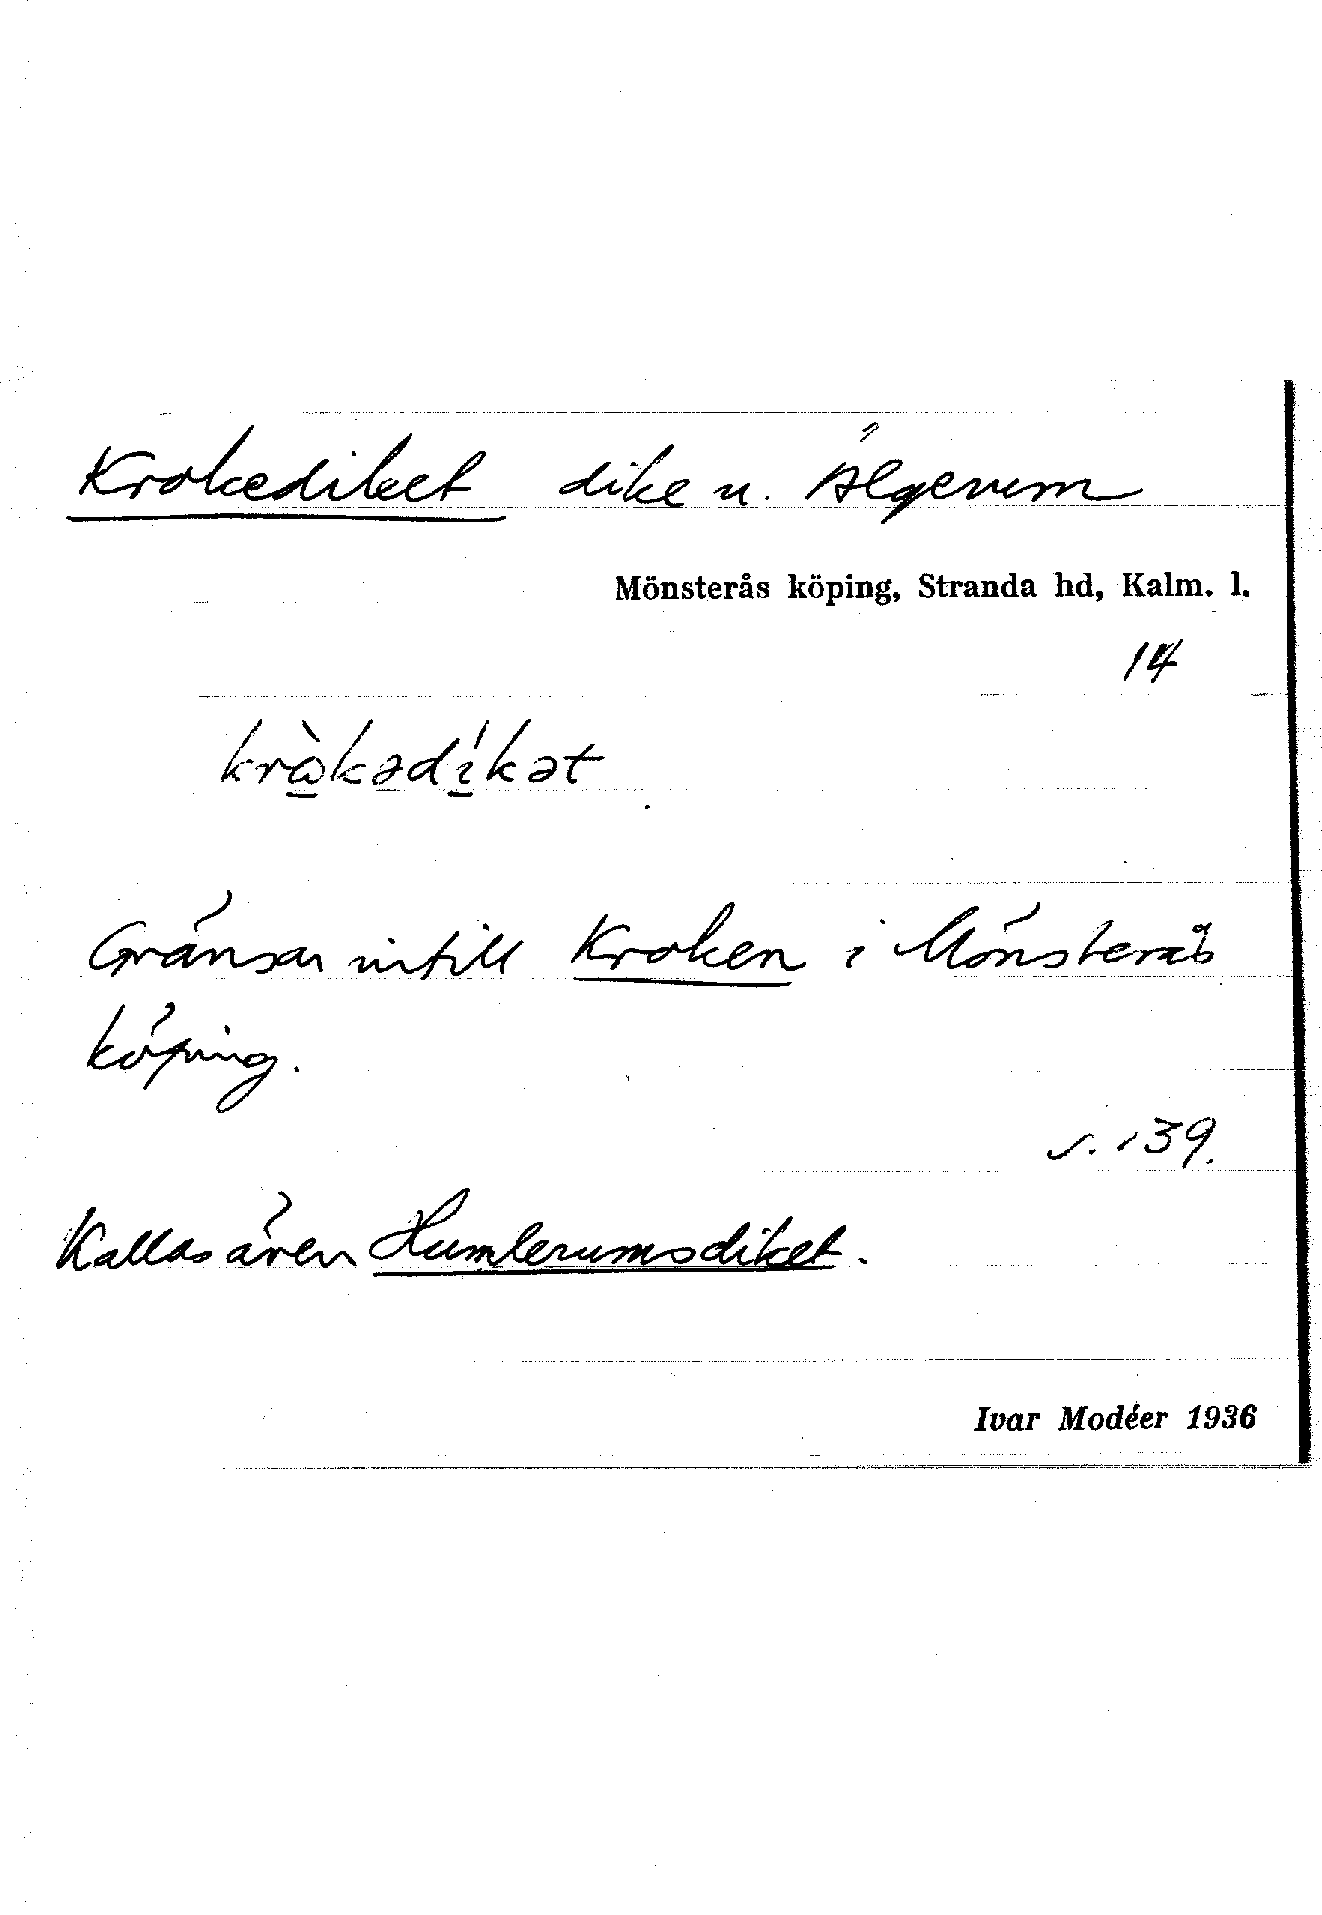 Krokediket dike u. Älgerum
Mönsterås köping, Stranda hd, Kalm. l.
14
krὼkədíkət
Gränsar intill Kroken i Mönsterås
köping.
s. 139.
Kallas även Humlerumsdiket.
Ivar Modéer 1936